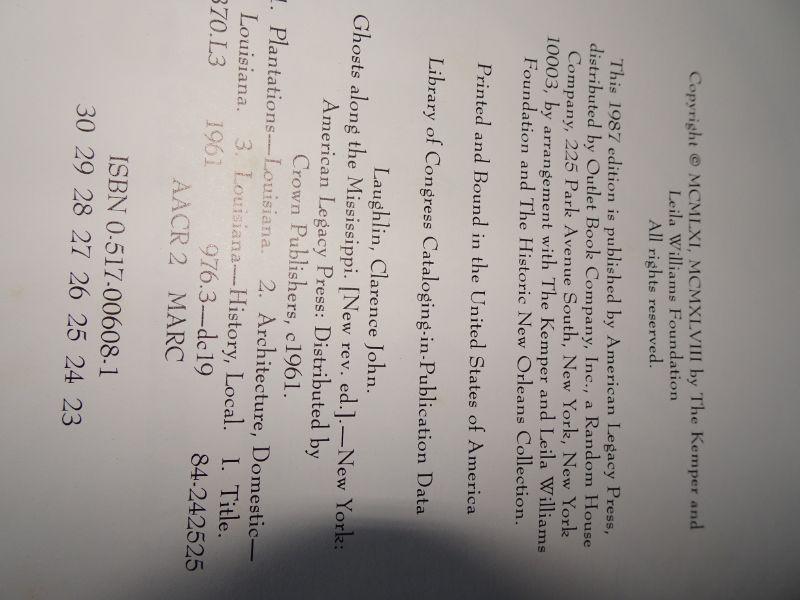 Copyright © MCMLXI, MCMXLVIII by The Kemper and
Leila Williams Foundation
All rights reserved.
This 1987 edition is published by American Legacy Press,
distributed by Outlet Book Company, Inc., a Random House
Company, 225 Park Avenue South, New York, New York
10003, by arrangement with The Kemper and Leila Williams
Foundation and The Historic New Orleans Collection.
Printed and Bound in the United States of America
Library of Congress Cataloging-in-Publication Data
Laughlin, Clarence John.
Ghosts along the Mississippi. [New rev. ed.].—New York:
American Legacy Press: Distributed by
Crown Publishers, c1961.
1. Plantations—Louisiana. 2. Architecture, Domestic—
Louisiana. 3. Louisiana—History, Local. I. Title.
370.L3 1961 976.3—dc19 84-242525
AACR 2 MARC
ISBN 0-517-00608-1
30 29 28 27 26 25 24 23